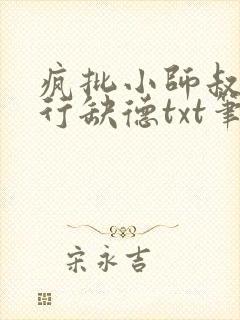 疯批小师叔
行缺德txt笔
宋永吉